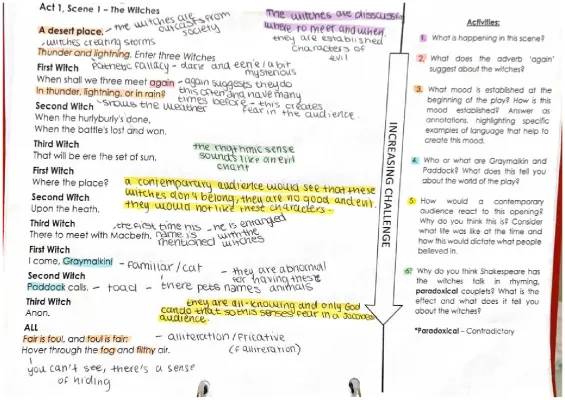 Act 1, Scene 1 – The Witches
- The witches are
outcasts from
society
The witches are disscusses
where to meet and when.
they are established
characters of
evil
A desert place.
witches creating storms
Thunder and lightning. Enter three Witches
First Witch
Pathetic fallacy - dark and eerie / a bit
mysterious
When shall we three meet again
- again suggests they do
this often and have many
times before - this creates
fear in the audience.
In thunder, lightning, or in rain?
Second Witch
- shows the weather
When the hurlyburly's done,
When the battle's lost and won.
Third Witch
That will be ere the set of sun.
the rhythmic sense
sounds like an evil
chant
First Witch
Where the place?
Second Witch
Upon the heath.
a contemporary audience would see that these
witches don't belong, they are no good and evil.
they would not like these characters.
Third Witch
There to meet with Macbeth.
the first time his
name is
mentioned
- he is entangled
with the
witches
First Witch
I come, Graymalkin!
- familiar / cat
- they are abnormal
for having these
animals
Second Witch
Paddock calls.
- toad
- there pets names
Third Witch
Anon.
they are all-knowing and only God
can do that so this senses fear in a Jacobean
audience.
ALL
Fair is foul, and foul is fair:
- alliteration / fricative
(f alliteration)
Hover through the fog and filthy air.
you can't see, there's a sense
of hiding
INCREASING CHALLENGE
Activities:
1. What is happening in this scene?
2. What does the adverb 'again'
suggest about the witches?
3. What mood is established at the
beginning of the play? How is this
mood established? Answer as
annotations, highlighting specific
examples of language that help to
create this mood.
4. Who or what are Graymalkin and
Paddock? What does this tell you
about the world of the play?
5. How would a contemporary
audience react to this opening?
Why do you think this is? Consider
what life was like at the time and
how this would dictate what people
believed in.
6. Why do you think Shakespeare has
the witches talk in rhyming,
paradoxical couplets? What is the
effect and what does it tell you
about the witches?
*Paradoxical – Contradictory